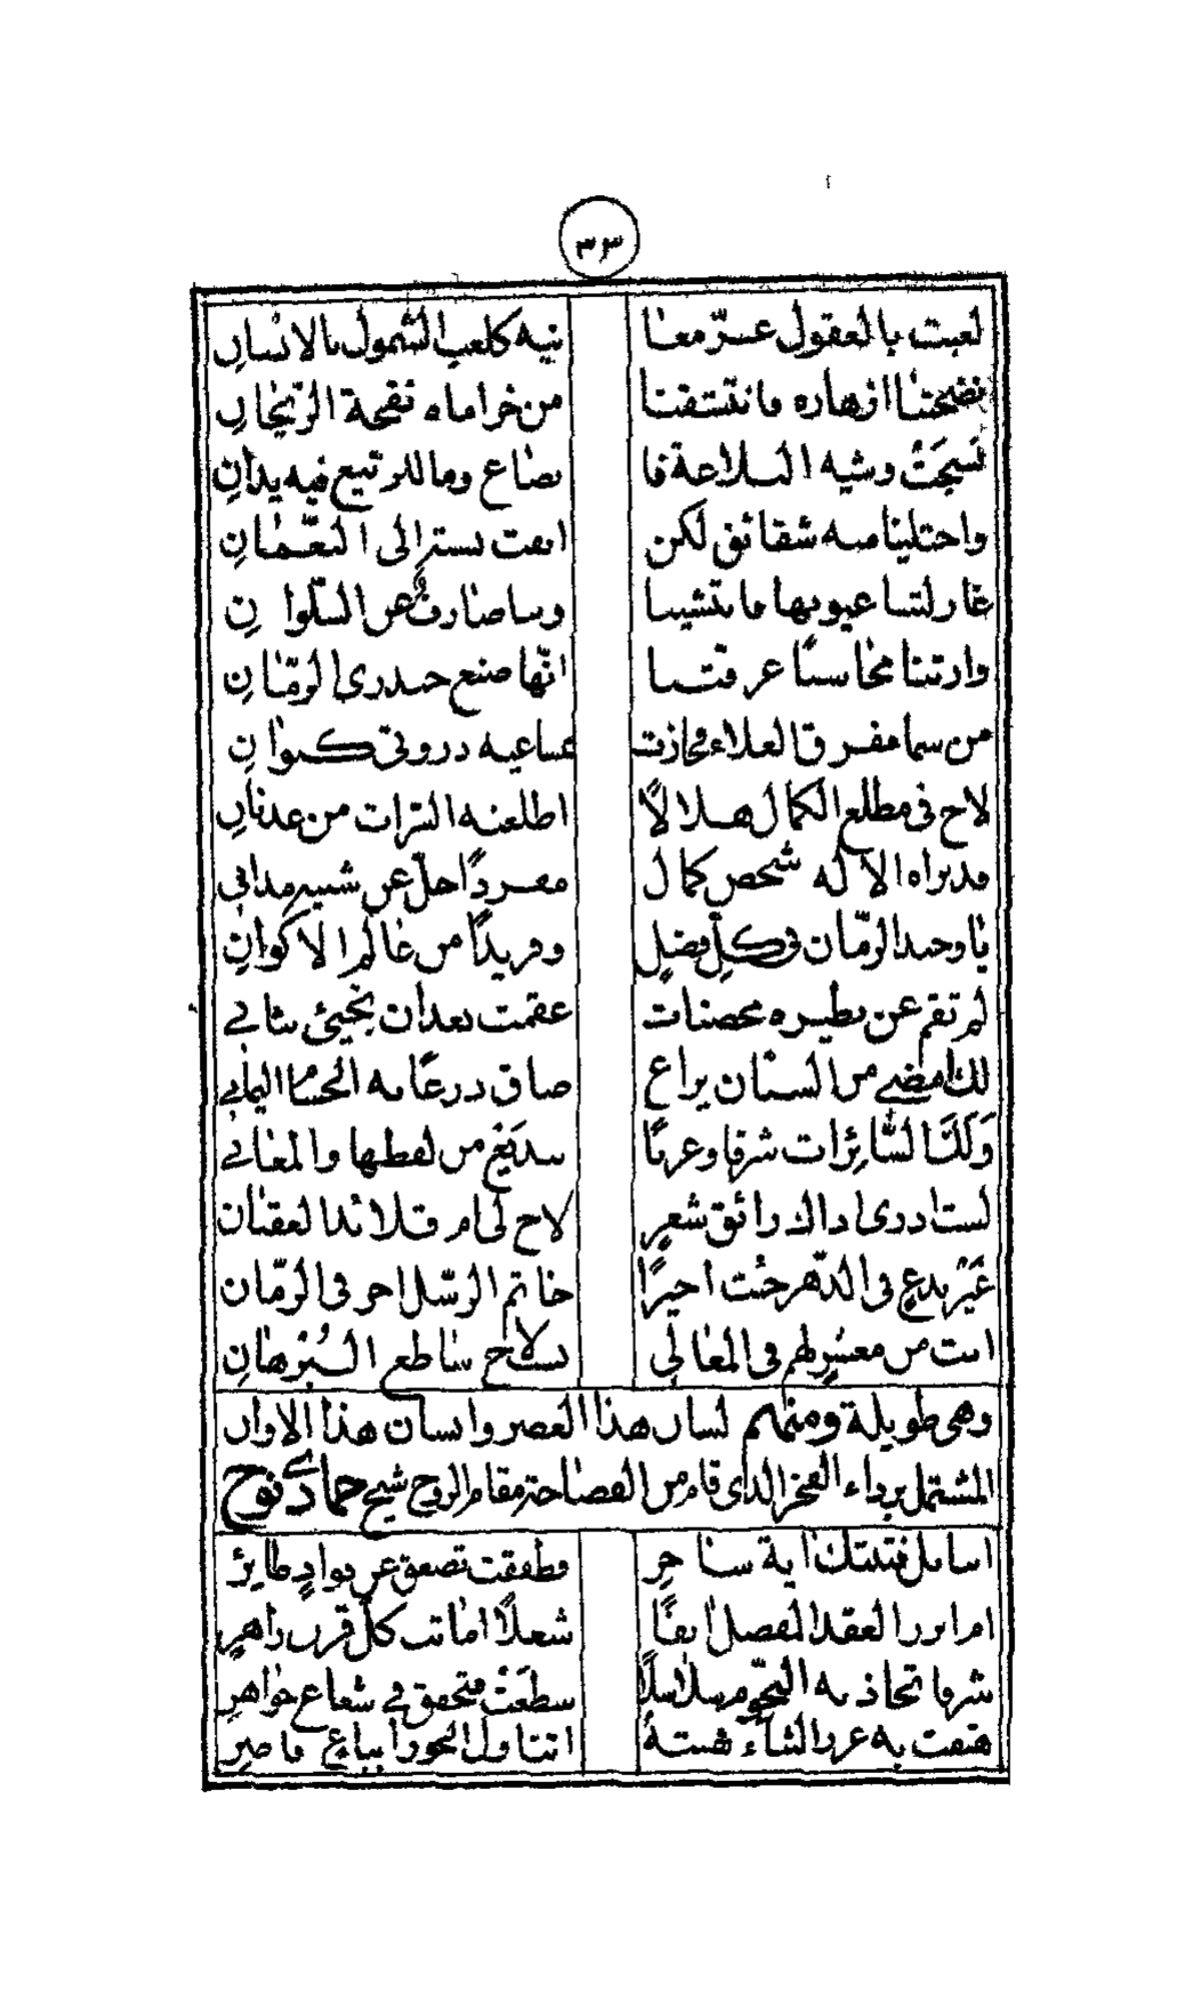 ٣٣
لعبت بالعقول عسرّ معا نيه كلعب الشمول بالانسان
نضحتنا ازهاره فانتشقنا من خزاماه نفحة الرّيحان
نسجت وشيه البلاغة فا بصاع وما للربيع فيه يدانِ
واجتلينا منه شقائق لكن ابقت بستر الى النعّمانِ
غازلتنا عيونها فانتشينا وسا صارفٌ عن السّلوانِ
وارتنا محاسنًا عرفتنا انّها صنع حيدري الزّمانِ
من سما مفرق العلاء فحازت درو في كيوانِ
لاح في مطلع الكمال هلالًا اطلعته السراة من عدنانِ
قد براه الاله شخص كمال مفردًا جلّ عن شبيه مداني
يا وحيد الزّمان في كلّ فضلٍ وفريدًا من عالم الاكوانِ
لم تقم عن نظيره محصنات عقمت بعد ان يجيئ بثاني
لك امضى من السنان يراع ضاق درعًا به الحسام اليماني
وَلَكَ السّائِرات شرقا وغربًا ببديع من لفظها والمعاني
لست ادرى اذاك رائق شعرٍ لاح لي ام قلائد العقيان
غَيْر بدعٍ في الدّهر جئت اخيرًا خاتم الرّسل اخر في الزّمان
انت من معشرٍ لهم في المعالي لاح ساطع البُرهانِ
وهي طويلة ومنهم لسان هذا العصر وانسان هذا الاوان
المشتمل برداء الفخر الذي قام من الفصاحة مقام الروح شيخ حمادي نوح
اسا مل فتنتك اية ساحرِ وطفقت تصعق عن فوادٍ طايرٍ
ام ابرز العقد المفصل رايقًا شعلًا اماتت كلّ قرن زاهرٍ
شرفا تحاذبه النجوم سلاسلًا سطعت فتحقق في شعاع جواهرِ
هتفت به غرر الثناء هستهُ اتناول الجوزا بباع قاصرِ